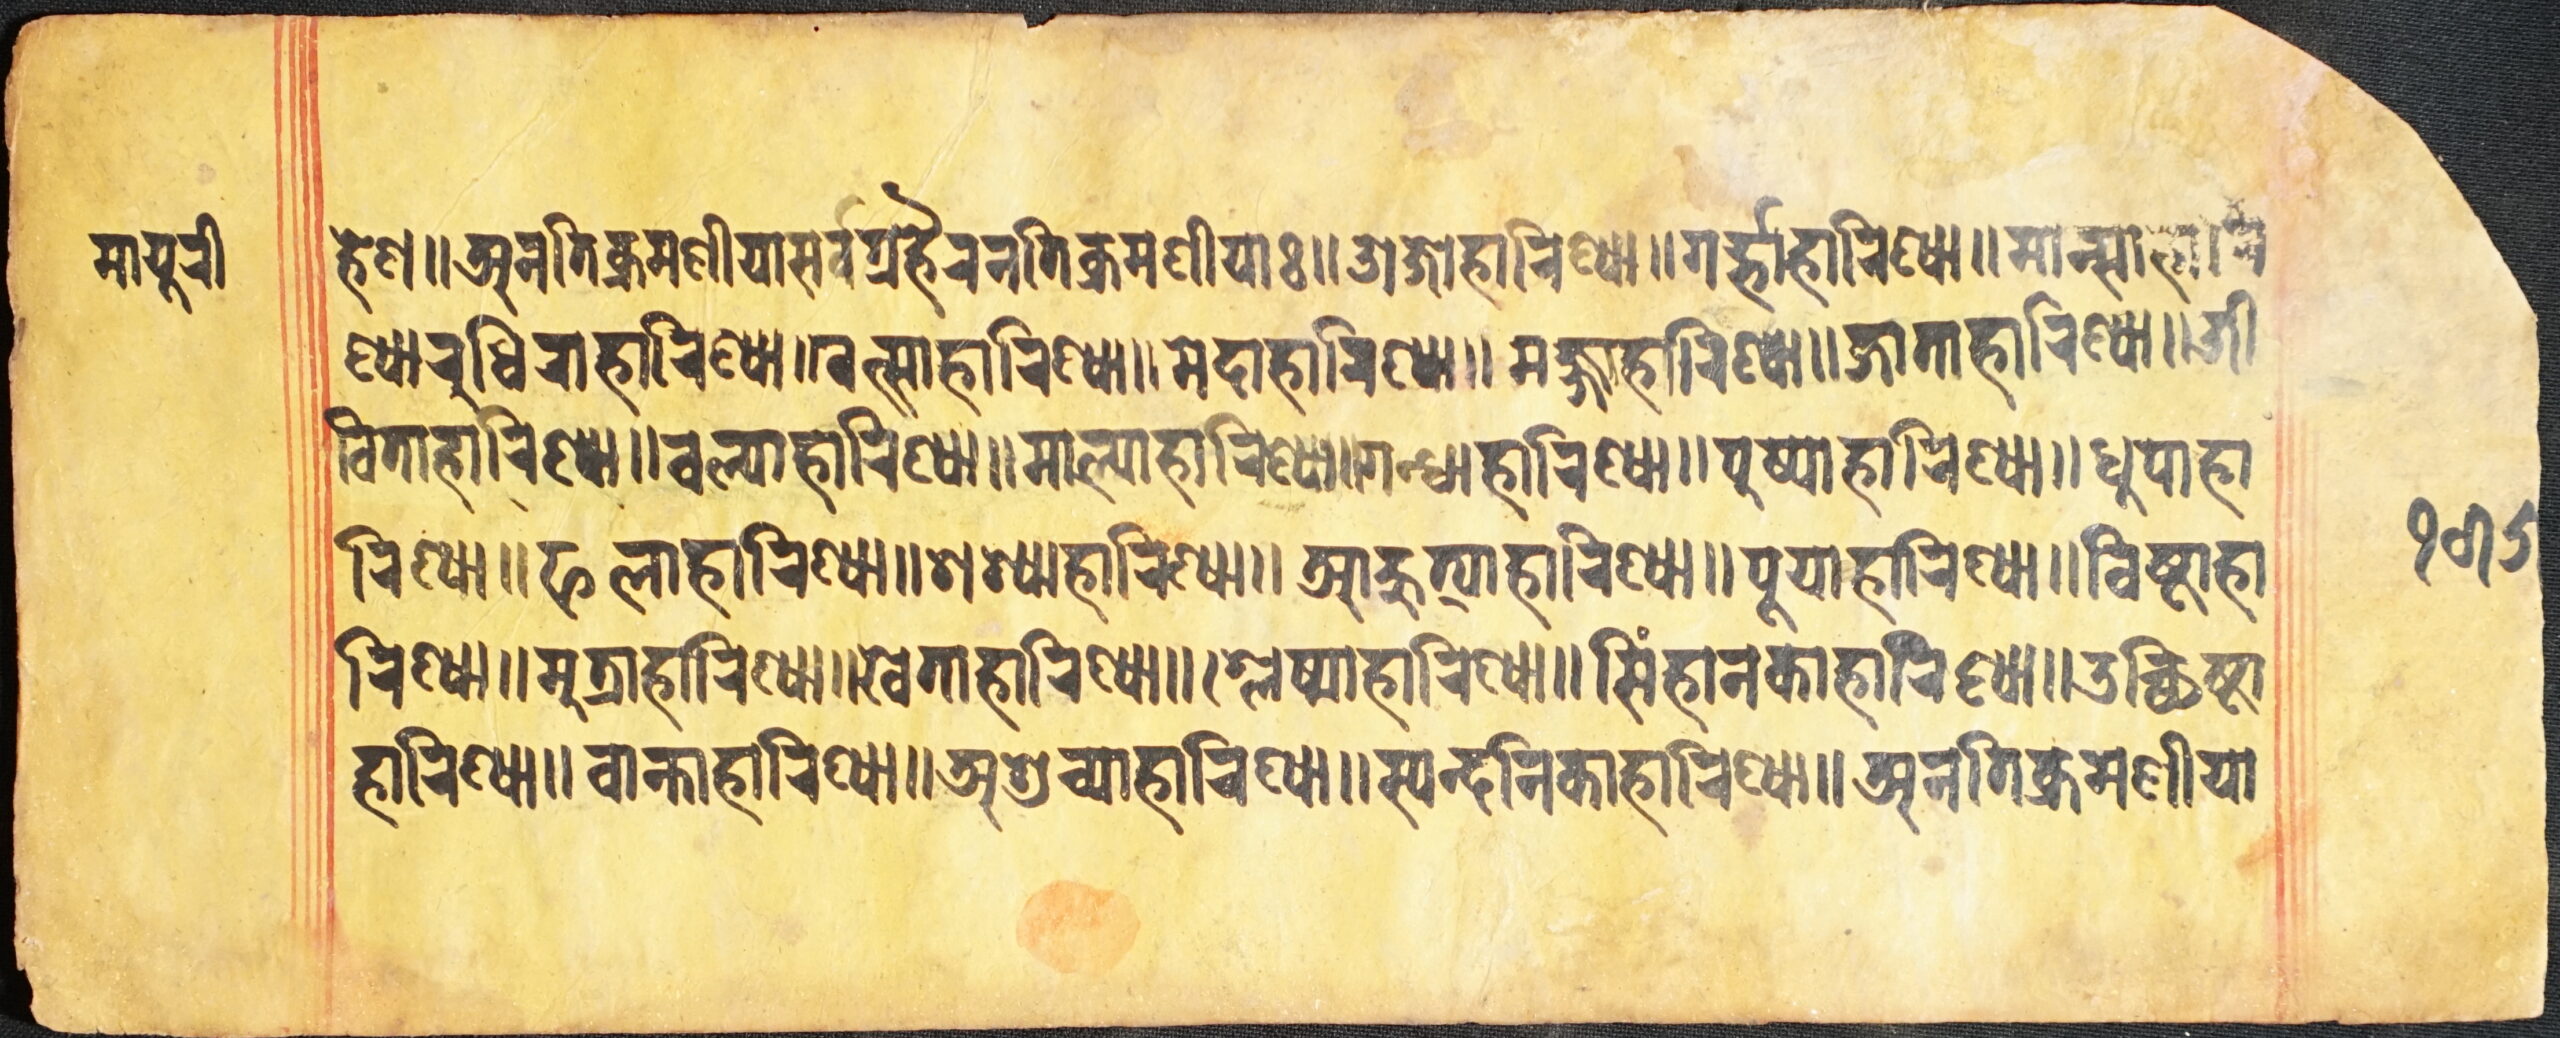 मायुरी
हेण॥ अनतिक्रमणीयासर्वग्रहैरनतिक्रमणीयाः॥ ओजोहारिण्या॥ गर्ब्भाहारिण्या॥ मान्साहारि
ण्या रुधिराहारिण्या॥ वत्साहारिण्या॥ मेदाहारिण्या॥ मज्जाहारिण्या॥ जाताहारिण्या॥ जी
विताहारिण्या॥ वल्याहारिण्या॥ माल्याहारिण्या॥ गन्धाहारिण्या॥ पुष्पाहारिण्या॥ धुपाहा
रिण्या॥ फलाहारिण्या॥ शश्याहारिण्या॥ आहुत्याहारिण्या॥ पूयाहारिण्या॥ विष्टाहा
रिण्या॥ मुत्राहारिण्या॥ खेताहारिण्या॥ श्लेष्माहारिण्या॥ सिंहानकाहारिण्या॥ उच्छिष्टा
हारिण्या॥ वान्ताहारिण्या॥ अशुच्याहारिण्या॥ स्पन्दनिकाहारिण्या॥ अनतिक्रमणीया